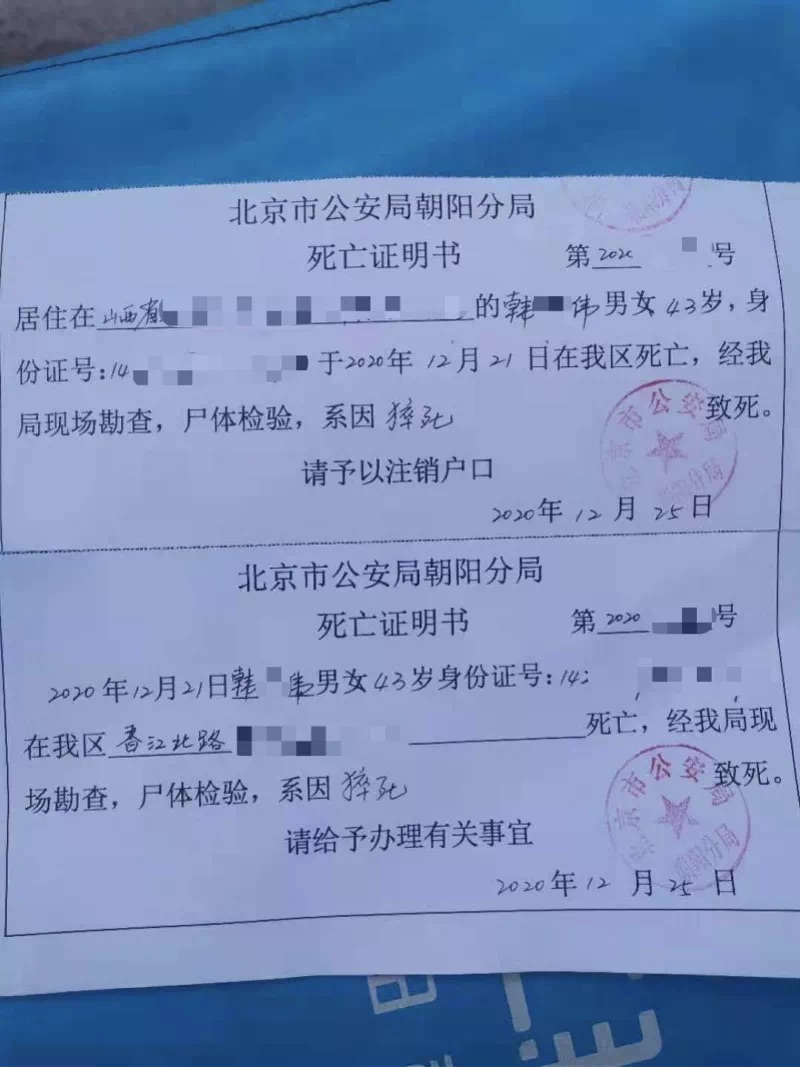 北京市公安局朝阳分局
死亡证明书 第2020 号
居住在山西省 的韩 伟男女43岁，身
份证号：14 于2020年12月21日在我区死亡，经我
局现场勘查，尸体检验，系因 猝死 致死。
请予以注销户口
2020年12月25日
北京市公安局朝阳分局
死亡证明书 第2020 号
2020年12月21日韩 伟男女43岁身份证号：14
在我区香江北路 死亡，经我局现
场勘查，尸体检验，系因 猝死 致死。
请给予办理有关事宜
2020年12月25日
北京市公安局
北京市公安局